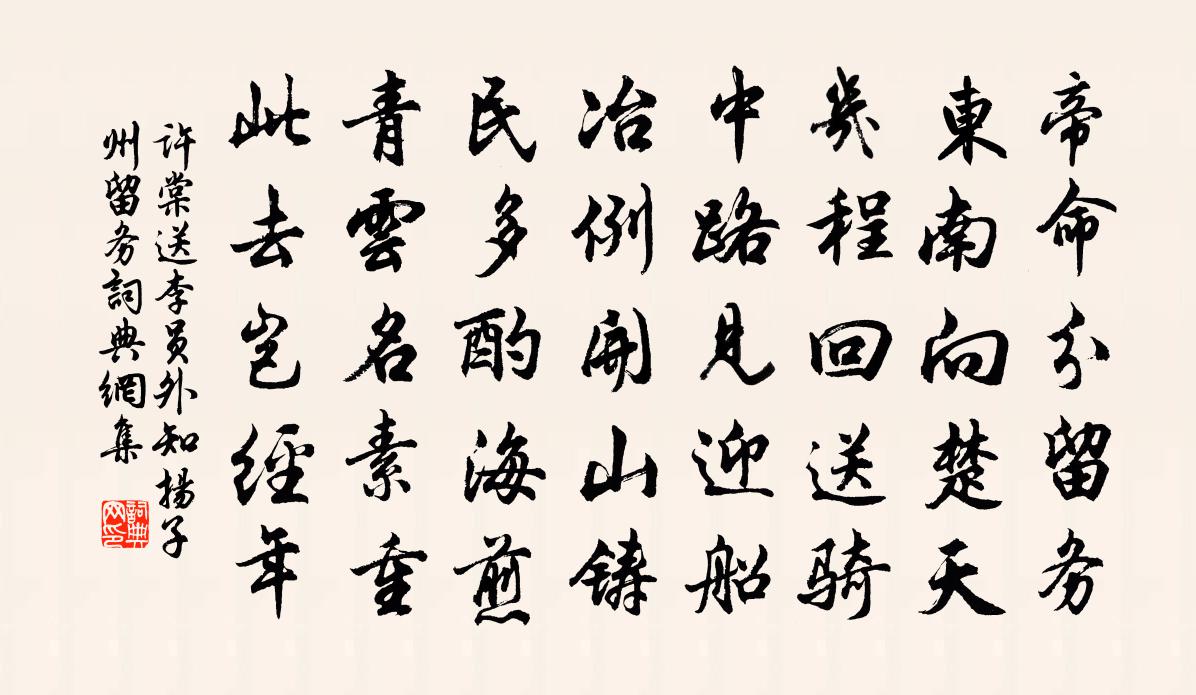 帝命分留务
東南向楚天
幾程回送骑
中路見迎船
冶例開山铸
民多酌海煎
青雲名素重
此去岂經年
许棠送李員外知揚子
州留务詞典網集
詞典网印